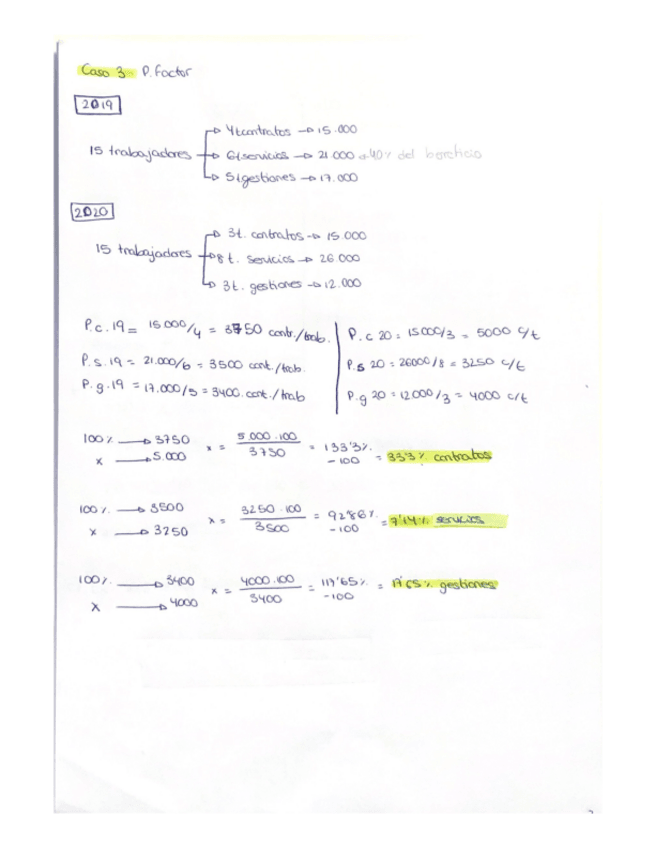 Caso 3: P. factor
2019
4t contratos → 15.000
15 trabajadores → 6t servicios → 21.000 → 40% del
5t gestiones → 17.000
2020
3t. contratos → 15.000
15 trabajadores → 8 t. servicios → 26.000
3t. gestiones → 12.000
P.c. 19 = 15.000/4 = 3750 contr./trab.
P.s. 19 = 21.000/6 = 3500 cont./trab.
P.g. 19 = 17.000/5 = 3400. cont./trab
P.c 20 = 15000/3 = 5000 c/t
P.s 20 = 26000/8 = 3250 c/t
P.g 20 = 12000/3 = 4000 c/t
100% → 3750
x → 5.000
x = 5.000·100 / 3750 = 133'3% -100 = 33'3% contratos
100% → 3500
x → 3250
x = 3250·100 / 3500 = 92'86% -100 = 7'14% servicios
100% → 3400
x → 4000
x = 4000·100 / 3400 = 117'65% -100 = 17'65% gestiones